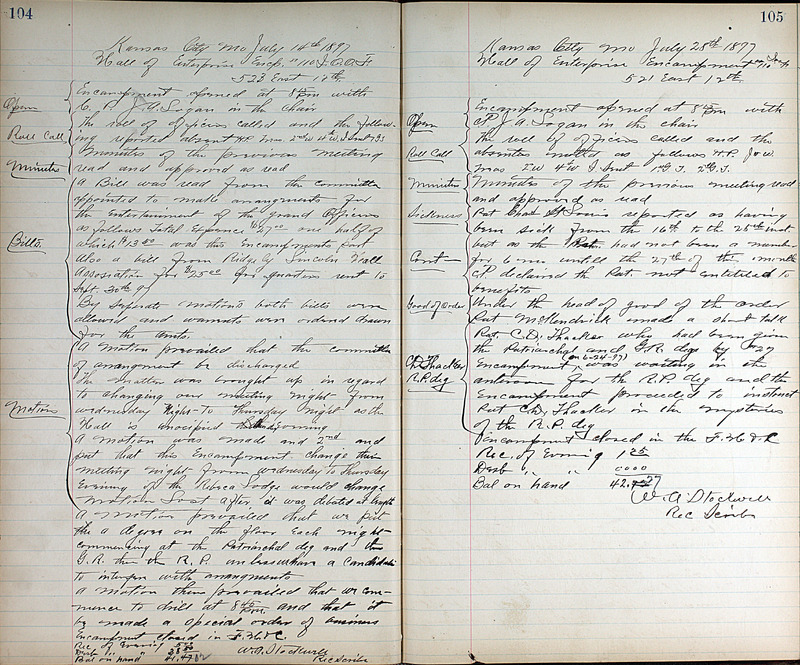 104
Kansas City Mo July 14th 1897
Hall of Enterprise Encp. "110 I.O.O.F.
523 East 12th
Open
Encampment opened at 8 pm with
C.P. J.A. Logan in the chair
Roll Call
The roll of officers called and the follow-
ing reported absent H.P. 2nd W 4th W I Sent
Minutes
Minutes of the previous meeting
read and approved as read
Bills
A Bill was read from the committee
appointed to make arrangments for
the Entertainment of the grand Officers
as follows Total Expence $27.00 one half of
which $13.50 was this Encampments part
Also a bill from Ridgely Lincoln Hall
Association for $25.00 for quarters rent to
Sept. 30th 97
By Seperate motions both bills were
allowed and warrants were ordered drawn
for the amts.
Motions
A motion prevailed that the committee
of arrangment be discharged
The matter was brought up in regard
to changing our meeting night from
wednesday Night to Thursday Night as the
Hall is unocipied that evening
A motion was made and 2nd and
put that this Encampment change their
meeting night from wednesday to Thursday
Evening if the Rebeca Lodge would change
Motion Lost after it was debated at length
A motion prevailed that we put
the a degree on the floor Each night
commencing at the Patriarchal deg and then
G.R. then the R.P. unless we have a candidate
to interfere with arrangments
A motion then prevailed that we com-
mence to drill at 8 pm and that it
be made a special order of business
Encampment closed in F.H. & C.
Rec. of Evening
Bal on hand 41.47
W.A. Stockwell
Rec Scribe
105
Kansas City Mo July 28th 1897
Hall of Enterprise Encampment "110 I.O.O.F.
521 East 12th
Open
Encampment opened at 8 pm with
CP J.A. Logan in the chair
Roll Call
The roll of officers called and the
absentees noted as follows H.P. J.W.
2W 4W I Sent 1st G.T. 2nd G.T.
Minutes
Minutes of the previous meeting read
and approved as read
Sickness
Pat Chas St Louis reported as having
been sick from the 16th to the 25th inst
but as the Pat. had not been a member
Cont—
for 6 mos untill the 27th of the month
CP declared the Pat not entiteled to
benefits
Good of Order
Under the head of good of the order
Pat McKendrick made a short talk
C.D. Thacker
R.P. deg
Pat. C.D. Thacker who had been given
the Patriarchal and G.R. degs by
(on 6-24-97)
Encampment, was waiting in the
anteroom for the R.P. deg and the
Encampment proceeded to instruct
Pat C.D. Thacker in the mysteries
of the R.P. deg
Encampment closed in the F.H. & C.
Rec. of Evening 1.25
Disb " " 0000
Bal on hand
W.A. Stockwell
Rec Scribe